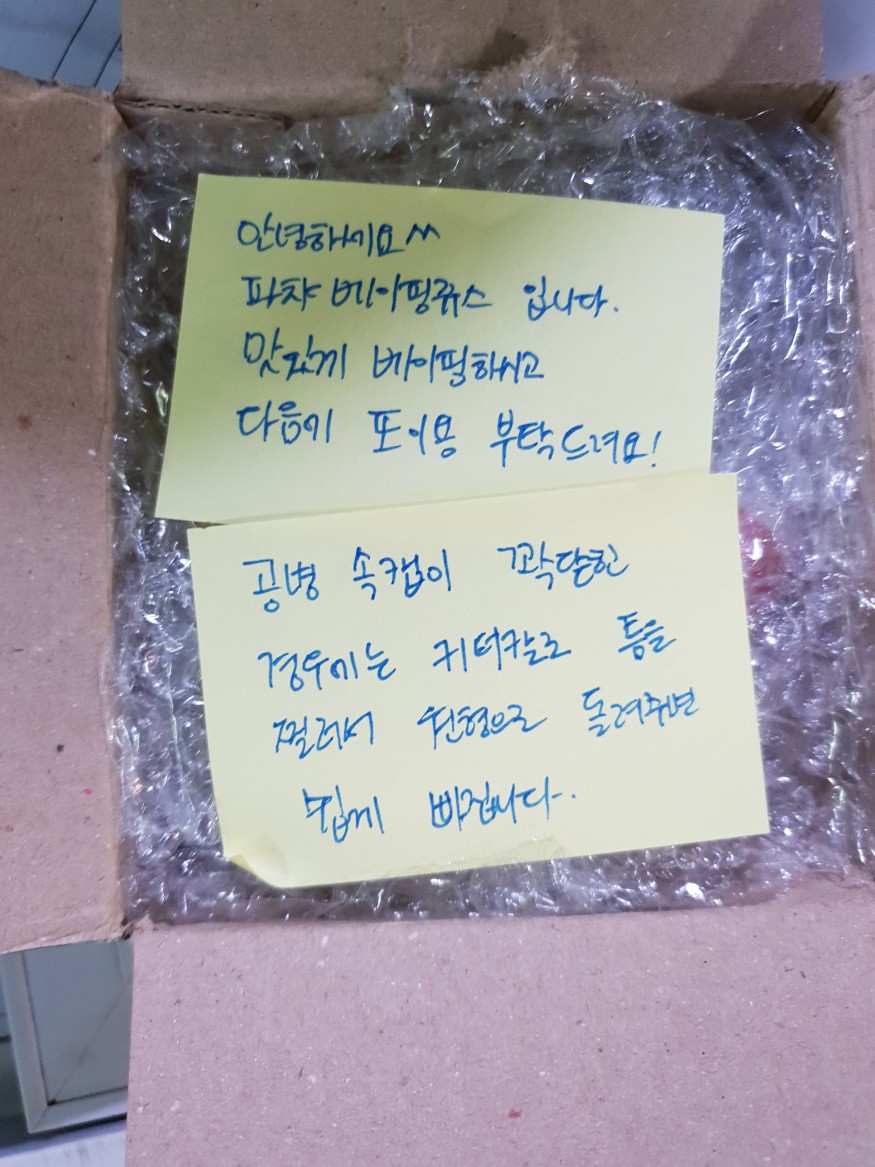 안녕하세요^^
파챠 베이핑쥬스 입니다.
맛있게 베이핑하시고
다음에 또 이용 부탁드려요!
공병 속캡이 꽉닫힌
경우에는 커터칼로 틈을
찔러서 원형으로 돌려주면
쉽게 빠집니다.